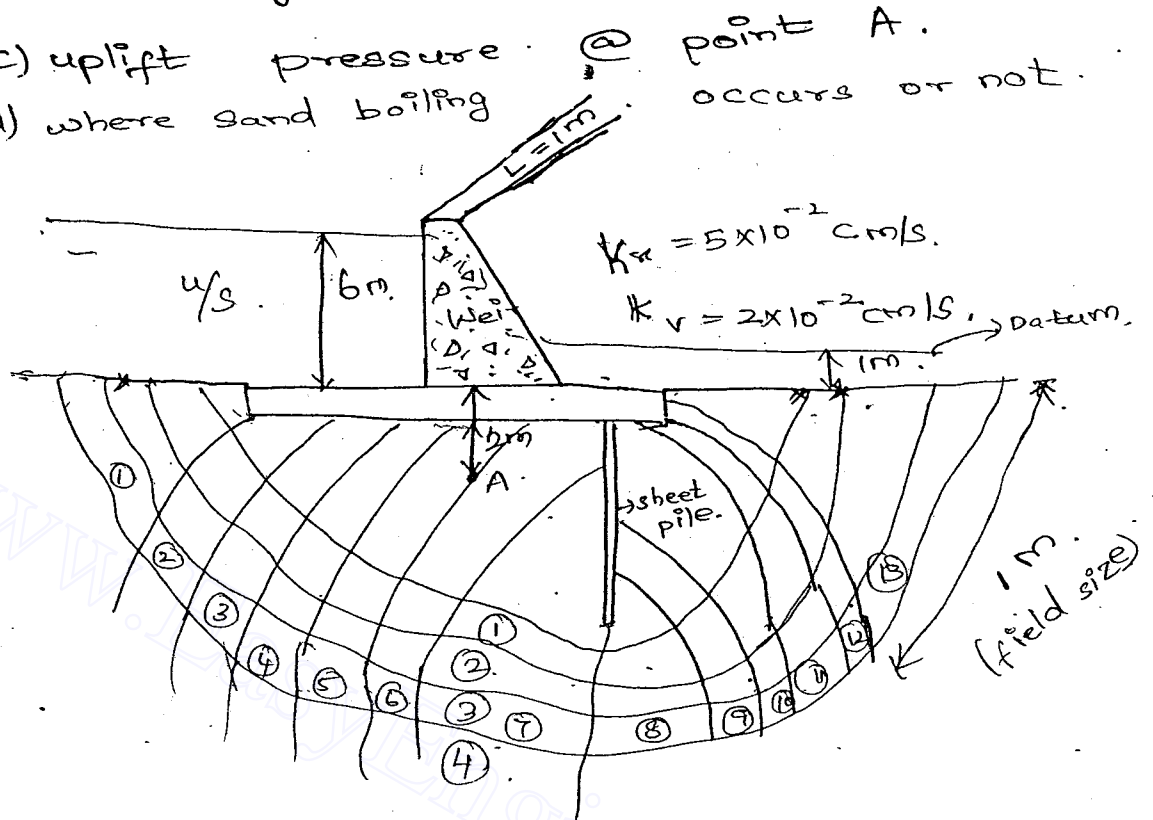 c) uplift pressure. @ point A.
d) where sand boiling occurs or not.
L = 1m
Kx = 5×10⁻² cm/s.
u/s.
6m.
Weir
Kv = 2×10⁻² cm/s.
Datum.
1m.
A.
sheet
pile.
1
2
3
4
5
6
7
8
9
10
11
12
13
1
2
3
4
1m.
(field size)